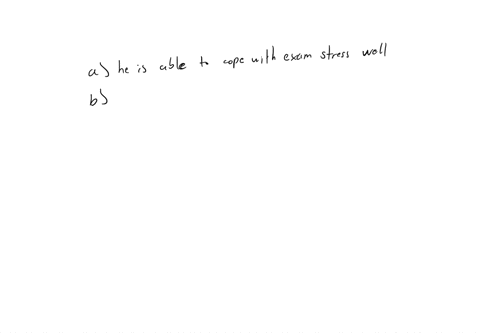 a) he is able to cope with exam stress well
b)